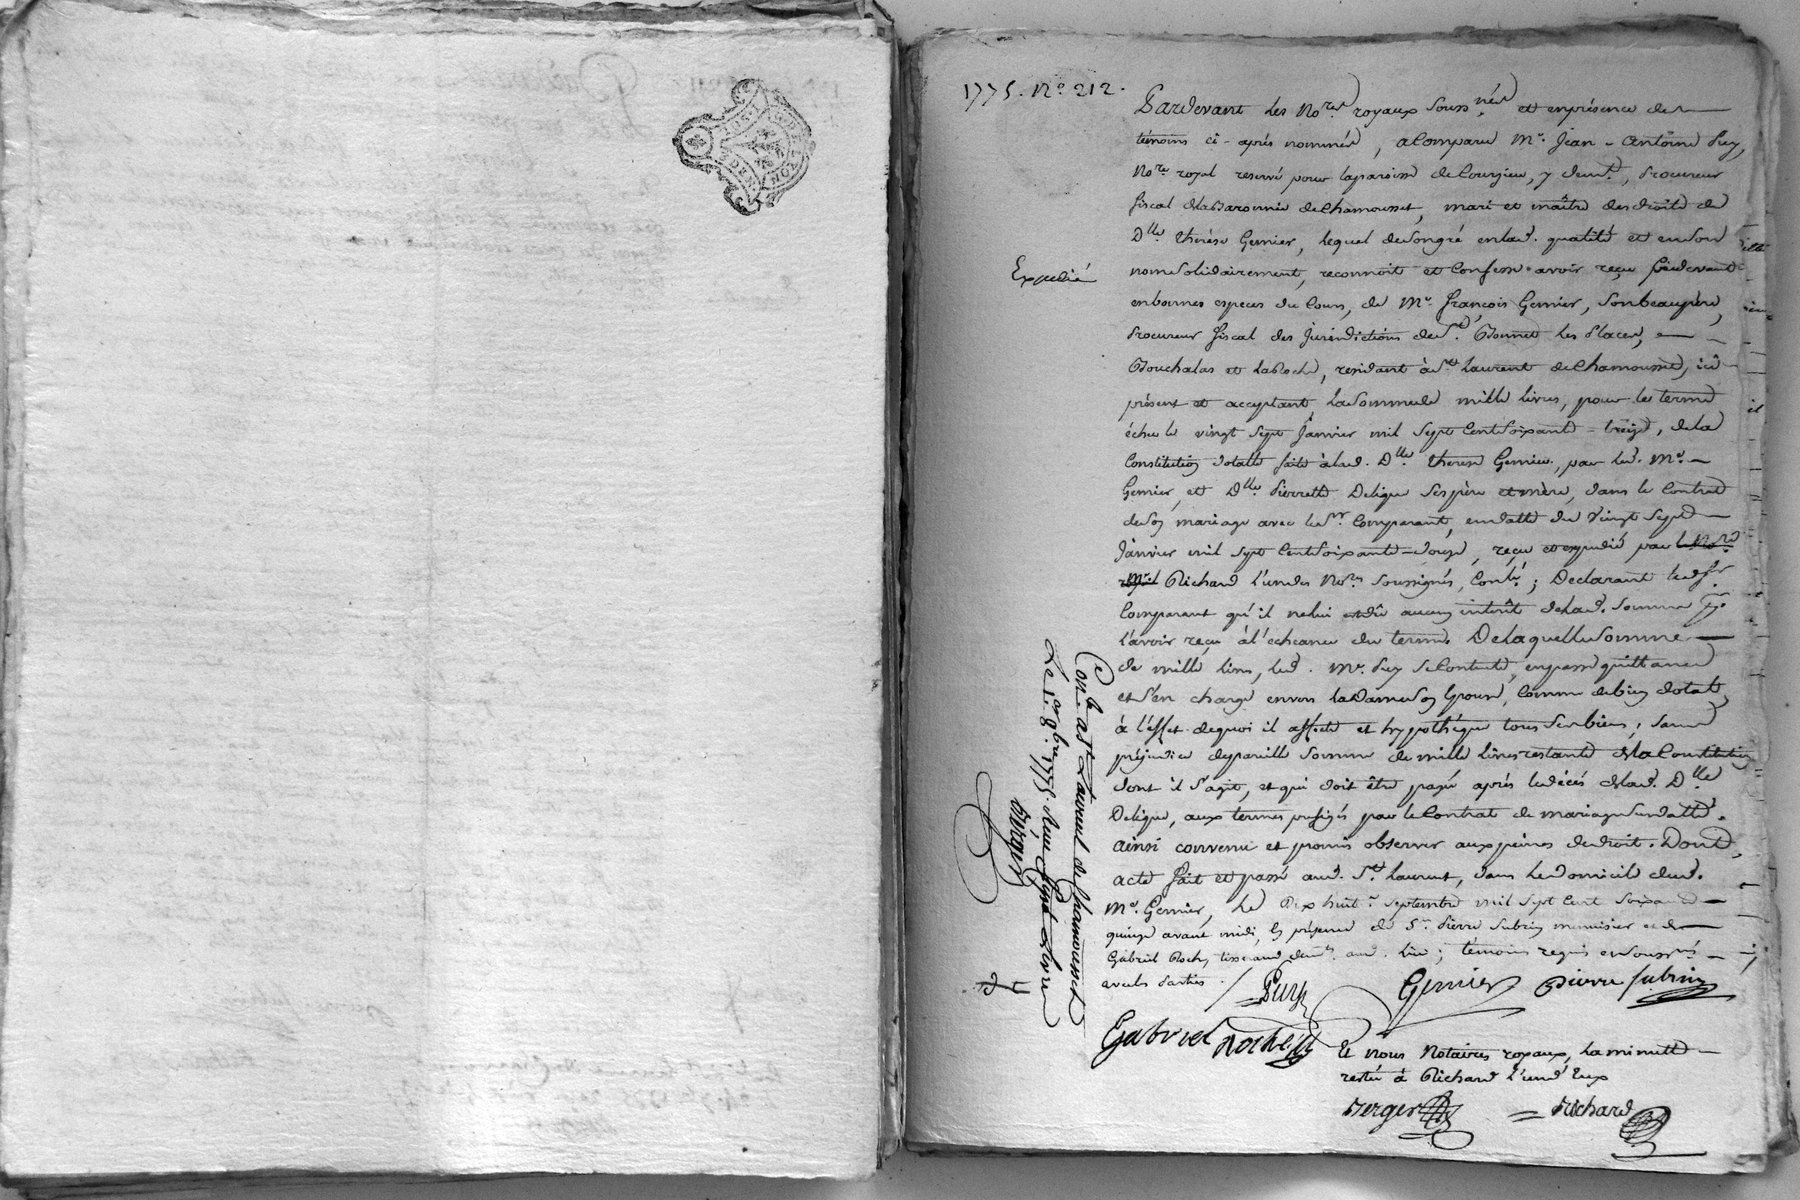 1775. No. 212.
Pardevant les No.res royaux souss.nés et en présence des
témoins ci-après nommés, a Comparu Me. Jean-Antoine
No.re royal reservé pour la paroisse de Courzieu, y dem.t, Procureur
fiscal de la Baronnie de Chamousset, mari et maître des droits de
D.lle Therese Gernier, lequel de son gré en lad. qualité et en son
nom solidairement, reconnoit et Confesse avoir reçu cidevant
en bonnes especes du Cours, de Me. françois Gernier, son beaupère,
Procureur fiscal des Jurisdictions de St. Bonnet les Places,
Bouchalas et la Roche, residant à St. Laurent de Chamousset, ici
présent et acceptant, la somme de mille livres, pour le terme
échu le vingt sept Janvier mil sept Cent Soixante-treize, de la
Constitution dotalle faite à lad. D.lle Therese Gernier, par led. Me.
Gernier, et D.lle Pierrette Deligue ses père et mère, dans le Contrat
de son mariage avec led. Sr. Comparant, en datte du Vingt Sept
Janvier mil sept Cent Soixante-douze, reçu et expédié par
Richard l'un des No.res soussignés, Contr.lé; Declarant led. Sr.
Comparant qu'il ne lui est dû aucun interêt de lad. somme p.r
l'avoir reçu à l'echeance du terme. De laquelle somme
de mille livres, led. Me. se Contente, en passe quittance
et s'en charge envers la Dame son Epouse, Comme de bien dotal,
à l'effet de quoi il affecte et hypothéque tous ses biens; sans
préjudice de pareille somme de mille livres restante de la Constitution
dont il s'agit, et qui doit être payée après le décés de lad. D.lle
Deligue, aux termes prefigés par le Contrat de mariage susdatté.
ainsi convenu et promis observer aux peines de droit. Dont
acte fait et passé aud. St. Laurent, dans le domicile dud.
Me. Gernier, le Dix huit septembre mil sept Cent Soixante
quinze avant midi, En présence de Sr. Pierre Subrin menuisier et de
Gabriel Roche tisserand dem.ts aud. lieu; témoins requis et soussignés
avec les Parties.
Gernier Pierre Subrin
Gabriel Roche
Et nous Notaires royaux, la minutte
restée à Richard l'un d'Eux
Berger Richard
Expedié
Con.lé a St. Laurent de Chamousset
Le 1.er 8.bre 1775. Reçu sept livres
Berger